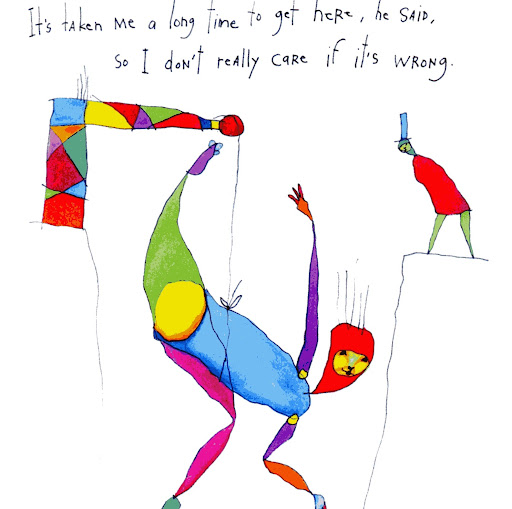 It's taken me a long time to get here, he said,
so I don't really care if it's wrong.